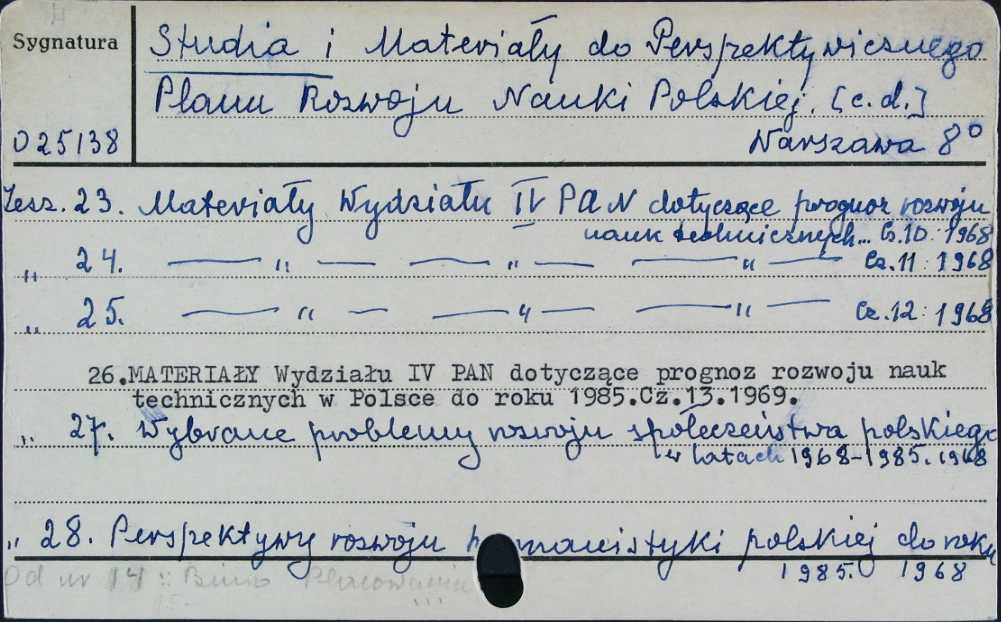 Sygnatura
Studia i Materiały do Perspektywicznego
Planu Rozwoju Nauki Polskiej. [c.d.]
025138
Warszawa 8°
Zesz. 23. Materiały Wydziału IV PAN dotyczące prognoz rozwoju
nauk technicznych... Cz.10. 1968
„ 24. — „ — — „ — — „ — Cz.11. 1968
„ 25. — „ — — „ — — „ — Cz.12. 1968
26.MATERIAŁY Wydziału IV PAN dotyczące prognoz rozwoju nauk
technicznych w Polsce do roku 1985.Cz.13.1969.
„ 27. Wybrane problemy rozwoju społeczeństwa polskiego
w latach 1968-1985. 1968
„ 28. Perspektywy rozwoju humanistyki polskiej do roku
1985. 1968
Od nr 14 : Biuro